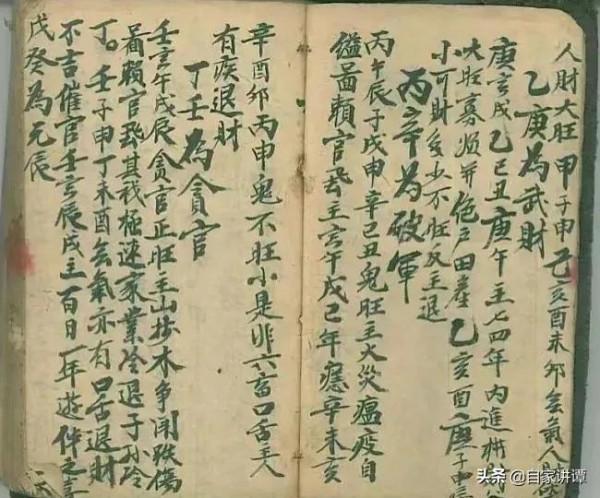 人財大旺甲子申乙亥酉未卯無氣人
乙庚為武財
庚寅戌乙巳丑庚午主七四年內進
大旺寡婦并絕戶田產乙亥酉庚子申
小可財多少不旺反主退
丙辛為破軍
丙午辰子戌申辛巳丑鬼旺主火災瘟疫自
縊圖賴官司主寅午戌巳年應辛未亥
辛酉卯丙申鬼不旺小是非六畜口舌主人
有疾退財
丁壬為貪官
壬寅午戌辰貪官正旺主山按木爭鬧跌傷
圖賴官司甚我極速家業冷退子孫冷
丁。壬子申丁未酉無氣亦有口舌退財
不吉催官壬寅辰戌主百日一年遊
戊癸為元辰
头条 @自家讲谭